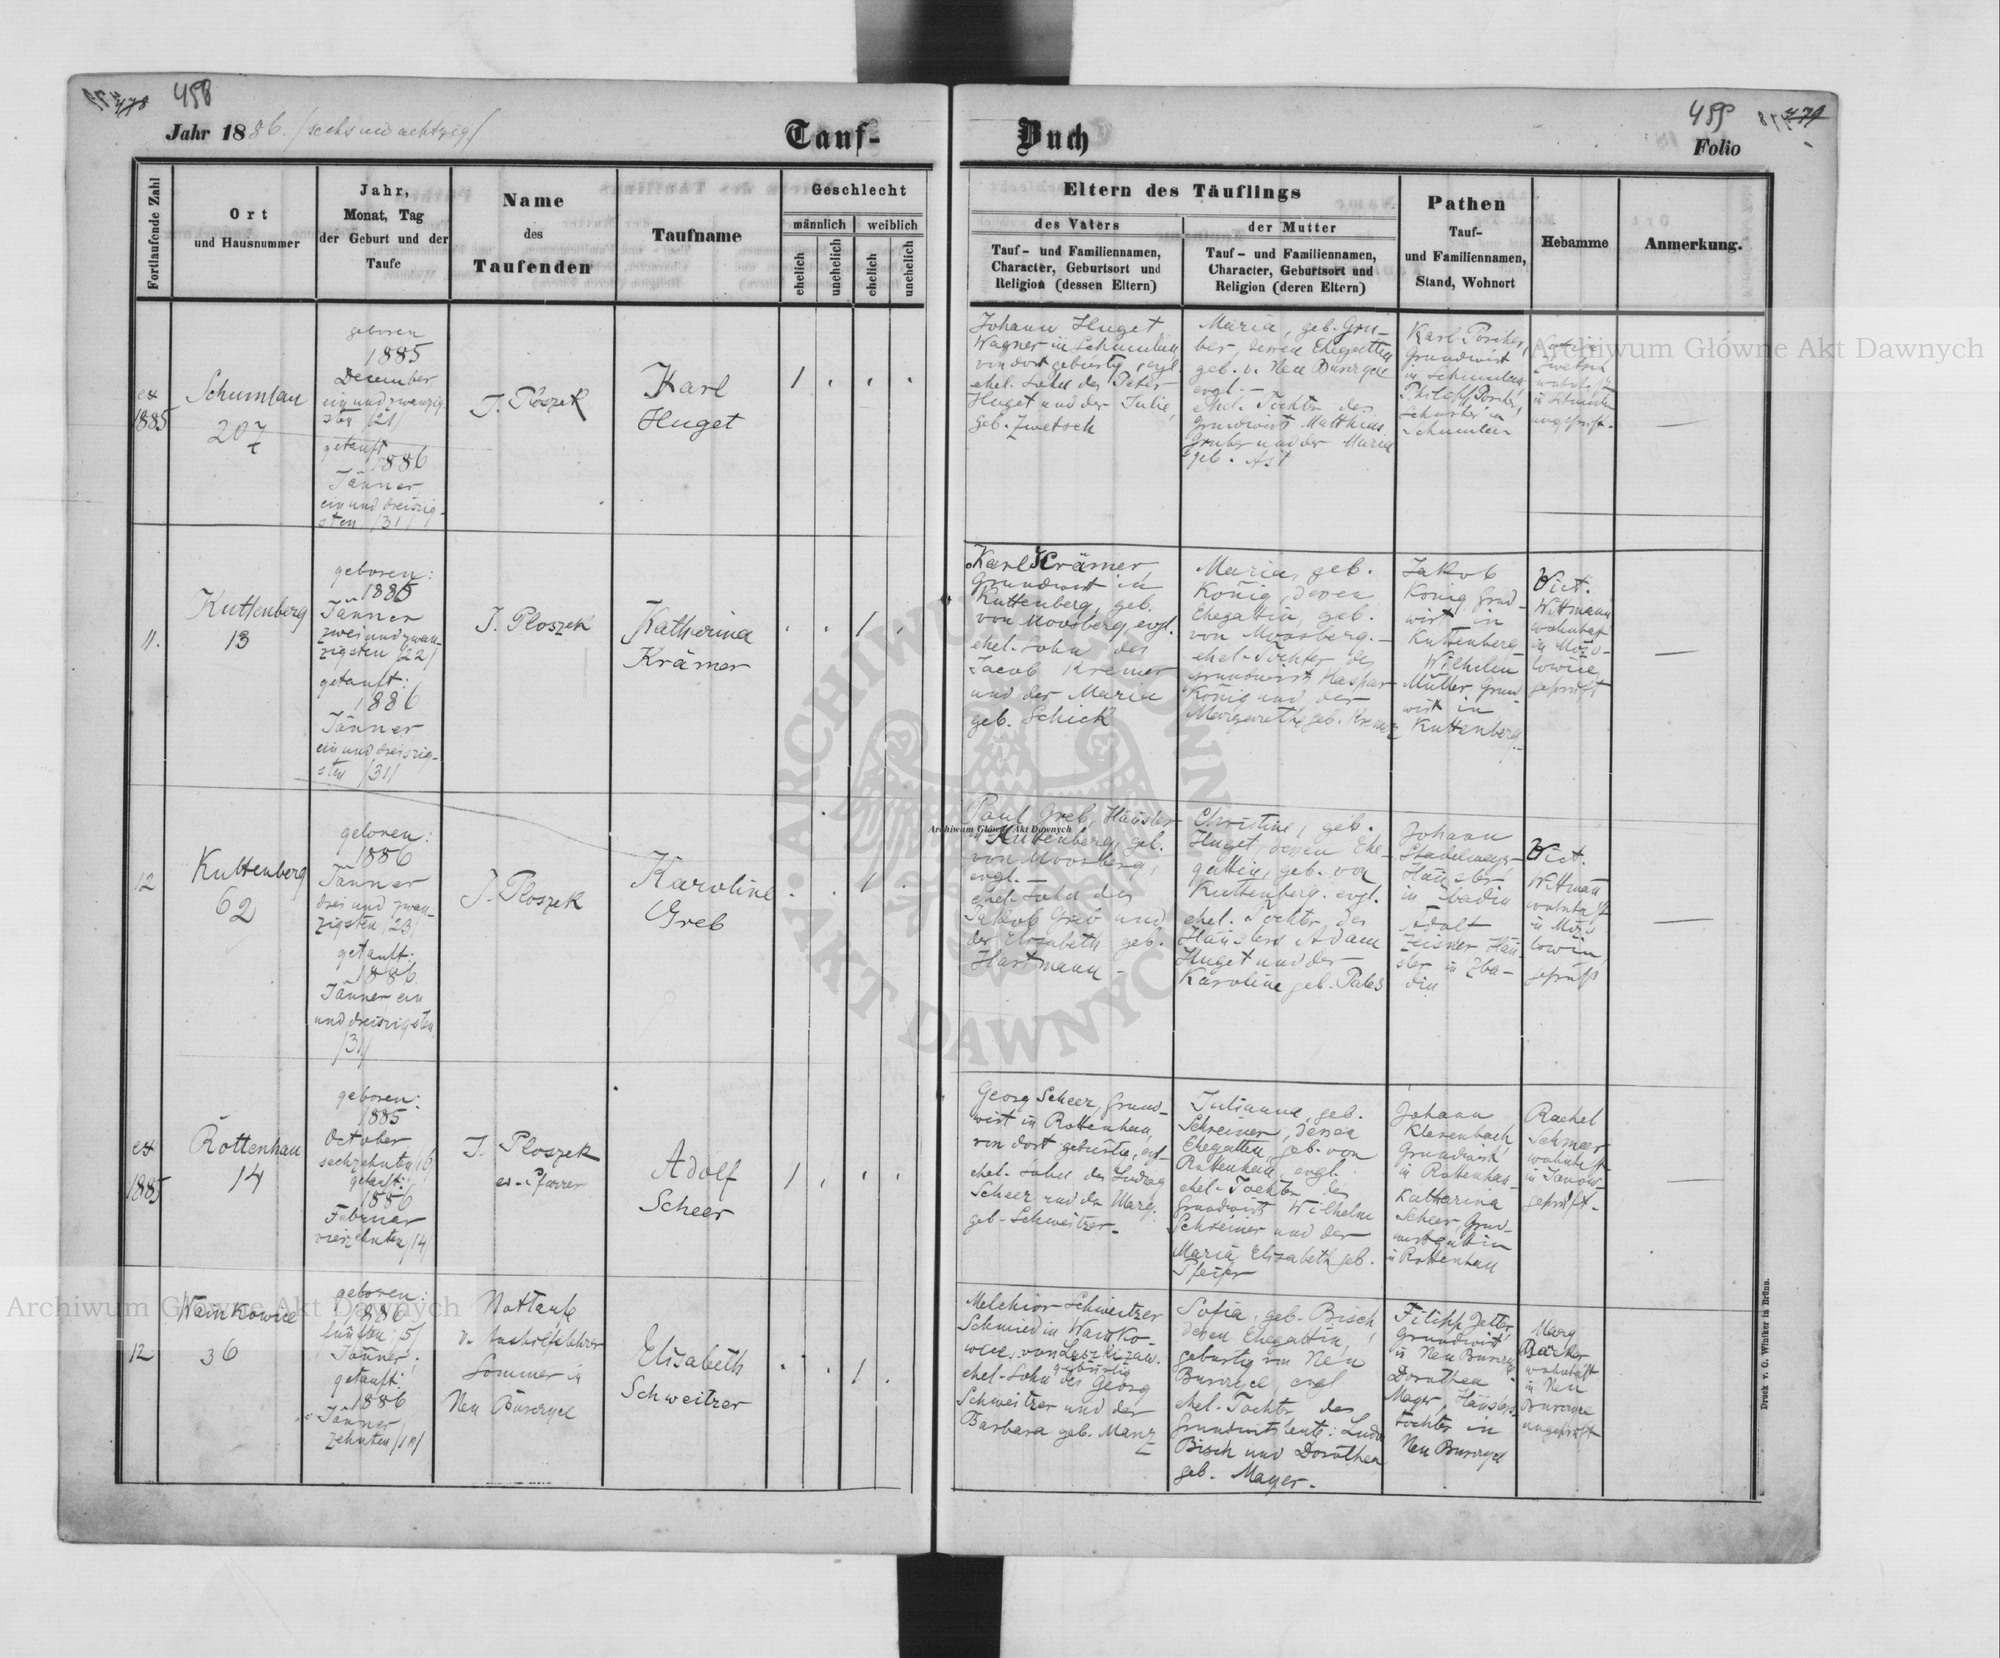 458
Jahr 1886. /sechs und achtzig/
Tauf-
Buch
459
Folio
Fortlaufende Zahl
Ort
und Hausnummer
Jahr,
Monat, Tag
der Geburt und der
Taufe
Name
des
Taufenden
Taufname
Geschlecht
männlich
weiblich
ehelich
unehelich
ehelich
unehelich
Eltern des Täuflings
des Vaters
Tauf- und Familiennamen,
Character, Geburtsort und
Religion (dessen Eltern)
der Mutter
Tauf- und Familiennamen,
Character, Geburtsort und
Religion (deren Eltern)
Pathen
Tauf-
und Familiennamen,
Stand, Wohnort
Hebamme
Anmerkung.
ex
1885
Schumlau
207
geboren
1885
December
ein und zwanzig-
sten /21/
getauft
1886
Jänner
ein und dreiszig-
sten /31/
J. Ploszek
Karl
Huget
1
Johann Huget
Wagner in Schumlau,
von dort gebürtig, evgl.
ehel. Sohn des Peter
Huget und der Julie,
geb. Zwetsch
Maria, geb. Gru-
ber, dessen Ehegattin
geb. v. Neu Burczyce
evgl.
ehel. Tochter des
Grundwirts Matthias
Gruber und der Maria
geb. Ast
Karl Porcher,
Grundwirt
in Schumlau
Philipp Porcher,
Schuster in
Schumlau
Zwetsch
wohnhaft
in Schumlau
ungeprüft.
11.
Kuttenberg
13
geboren:
1886
Jänner
zwei und zwan-
zigsten /22/
getauft:
1886
Jänner
ein und dreiszig-
sten /31/
J. Ploszek
Katharina
Krämer
1
Karl Krämer
Grundwirt in
Kuttenberg, geb.
von Moosberg evgl.
ehel. Sohn des
Jacob Kremer
und der Maria
geb. Schick
Maria, geb.
König, dessen
Ehegattin, geb.
von Moosberg.
ehel. Tochter des
Grundwirts Kaspar
König und der
Margarethe geb. Kremer
Jakob
König, Grund-
wirt in
Kuttenberg
Wilhelm
Müller, Grund-
wirt in
Kuttenberg.
Vict.
Wittmann
wohnhaft
in Mos-
lowice
geprüft
12
Kuttenberg
62
geboren:
1886
Jänner
drei und zwan-
zigsten /23/
getauft:
1886
Jänner ein
und dreiszigsten
/31/
J. Ploszek
Karoline
Greb
1
Paul Greb, Häusler
in Kuttenberg, geb.
von Moosberg,
evgl.
ehel. Sohn des
Jakob Greb und
der Elisabeth geb.
Hartmann
Christine, geb.
Huget, dessen Ehe-
gattin, geb. von
Kuttenberg. evgl.
ehel. Tochter des
Häuslers Adam
Huget und der
Karoline geb. Pales
Johann
Stadelmeyer
Häusler
in Zbadin
Adolf
Zeisner Häu-
sler in Zba-
din
Vict.
Wittmann
wohnhaft
in Mos
lowice,
geprüft
ex
1885
Rottenhan
14
geboren:
1885
October
sechzehnten /16/
getauft:
1886
Februar
vierzehnten /14/
J. Ploszek
ev. Pfarrer
Adolf
Scheer
1
Georg Scheer, Grund-
wirt in Rottenhan,
von dort gebürtig, evgl.
ehel. Sohn des Ludwig
Scheer und der Marg.
geb. Schweitzer
Julianna, geb.
Schreiner, dessen
Ehegattin, geb. von
Rottenhan, evgl.
ehel. Tochter des
Grundwirts Wilhelm
Schreiner und der
Maria Elisabeth geb.
Pfeifer
Johann
Klesenbach,
Grundwirt
in Rottenhan
Katharina
Scheer, Grund-
wirtsgattin
in Rottenhan
Rachel
Schmeer
wohnhaft
in Janow
geprüft.
12
Wankowice
36
geboren:
1886
fünften /5/
Jänner;
getauft:
1886
Jänner
zehnten /10/
Nottaufe
v. Aushilfslehrer
Sommer in
Neu Burczyce
Elisabeth
Schweitzer
1
Melchior Schweitzer
Schmied in Wanko-
wice, von
gebürtig
ehel. Sohn des Georg
Schweitzer und der
Barbara geb. Manz
Sofia, geb. Bisch
dessen Ehegattin,
gebürtig von Neu
Burczyce, evgl.
ehel. Tochter des
Grundwirts
Bisch und Dorothea
geb. Mayer.
Filipp
Grundwirt
in Neu Burczyce
Dorothea
Mayer, Häuslers-
tochter in
Neu Burczyce
Marg
wohnhaft
in Neu
Burczyce
ungeprüft
Druck v. C. Winiker in Brünn.
Archiwum Główne Akt Dawnych
Archiwum Główne Akt Dawnych
Archiwum Główne Akt Dawnych
ARCHIWUM GŁÓWNE
AKT DAWNYCH